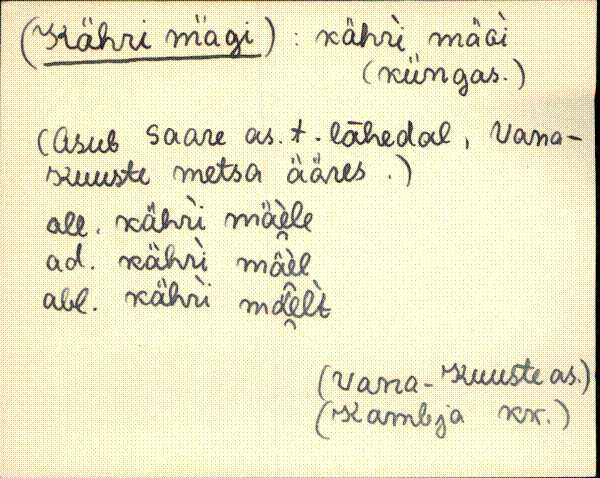 (Kähri mägi) : kähri̖ mäɢi̖
(küngas.)
(Asub Saare as. t. lähedal, Vana-
Kuuste metsa ääres.)
all. kähri̖ mäe̖le
ad. kähri̖ mäe̖l
abl. kähri̖ mäe̖lt
(Vana-Kuuste as.)
(Kambja kk.)